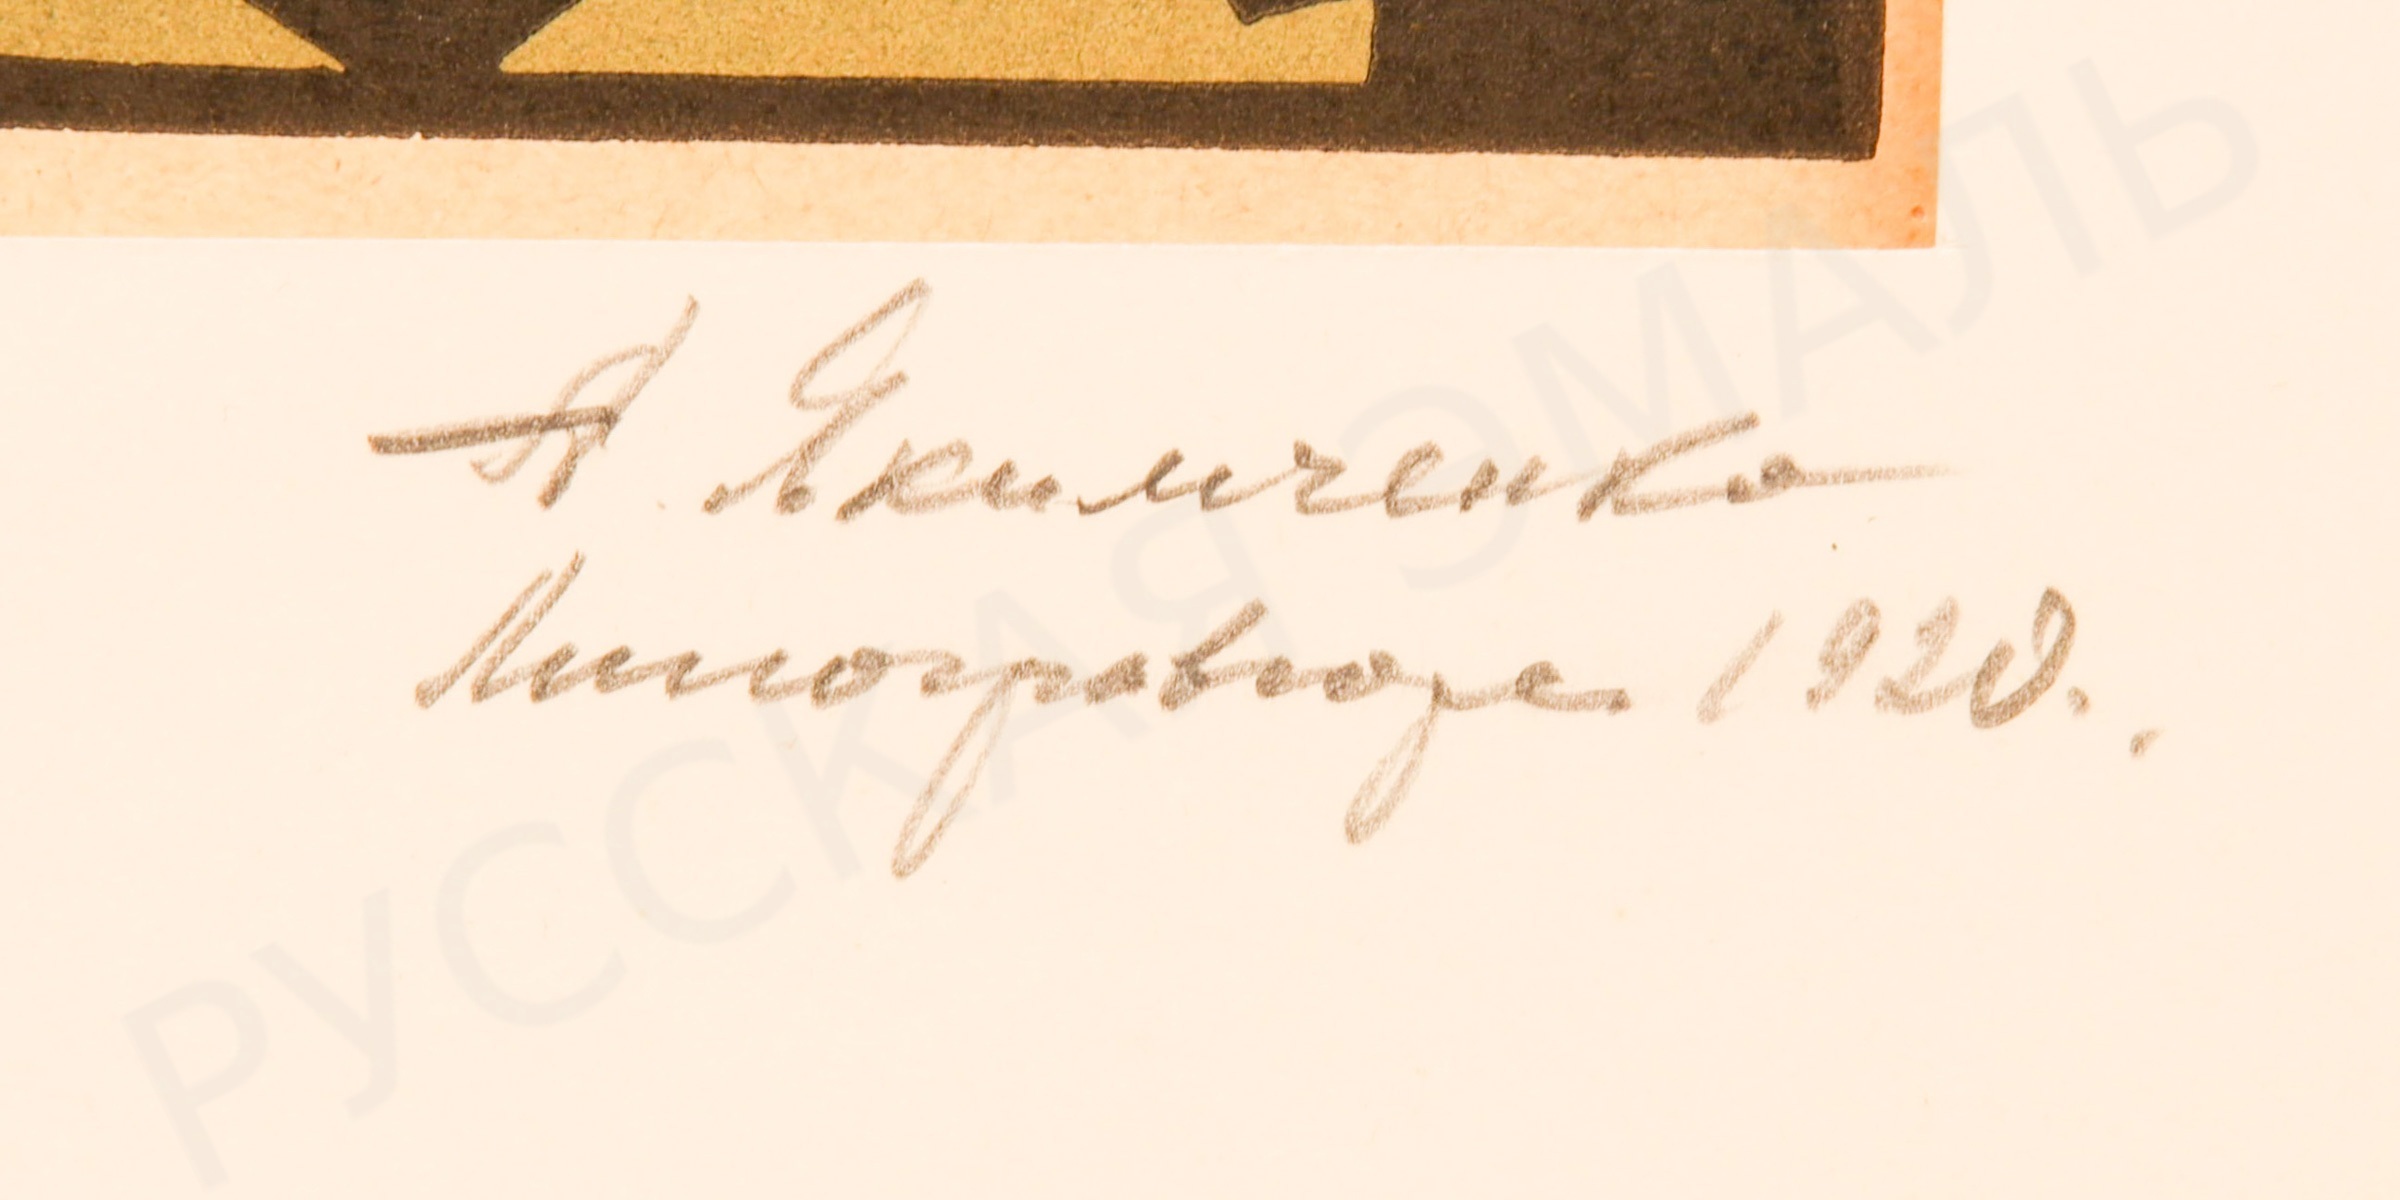 А Якимченко
Линогравюра 1920.
РУССКАЯ ЭМАЛЬ